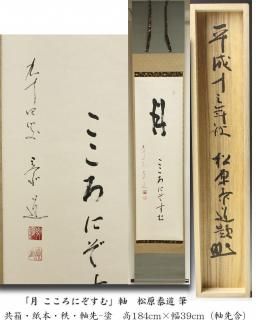 九十四叟 泰道
こころにぞす
月
こころにぞすむ
平成十三年秋 松原泰道題
「月 こころにぞすむ」軸　松原泰道 筆
共箱・紙本・秩・軸先-塗　高184cm×幅39cm（軸先含）